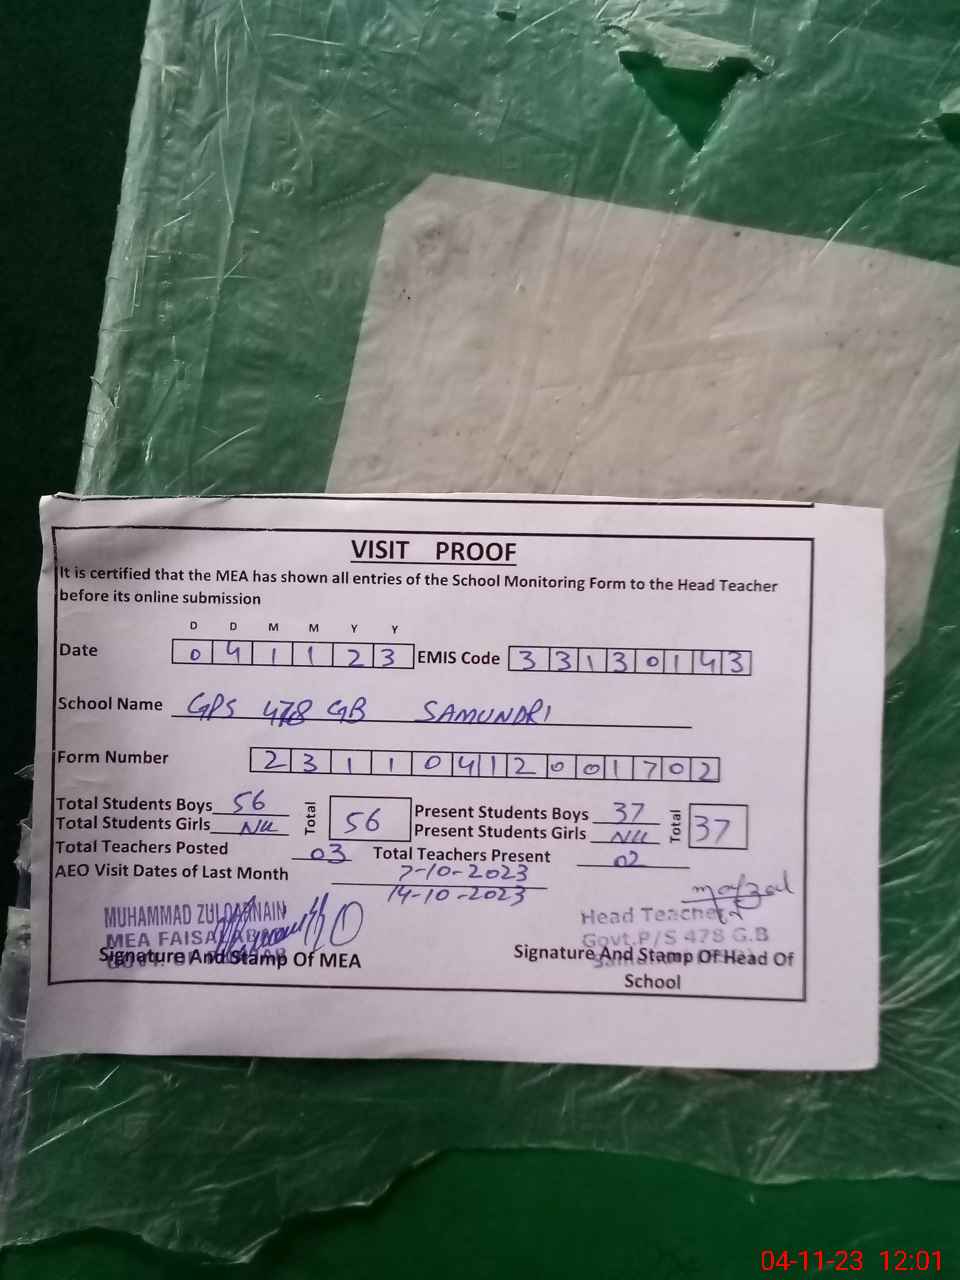 VISIT PROOF
It is certified that the MEA has shown all entries of the School Monitoring Form to the Head Teacher
before its online submission
D D M M Y Y
Date 0 4 1 1 2 3 EMIS Code 3 3 1 3 0 1 4 3
School Name GPS 478 GB SAMUNDRI
Form Number 2 3 1 1 0 4 1 2 0 0 1 7 0 2
Total Students Boys 56 Total 56 Present Students Boys 37 Total 37
Total Students Girls Nil Present Students Girls Nil
Total Teachers Posted 03 Total Teachers Present 02
AEO Visit Dates of Last Month 7-10-2023
14-10-2023
MUHAMMAD ZULQARNAIN
MEA FAISALABAD
Signature And Stamp Of MEA
Head Teacher
Govt.P/S 478 G.B
Signature And Stamp Of Head Of
School
04-11-23 12:01